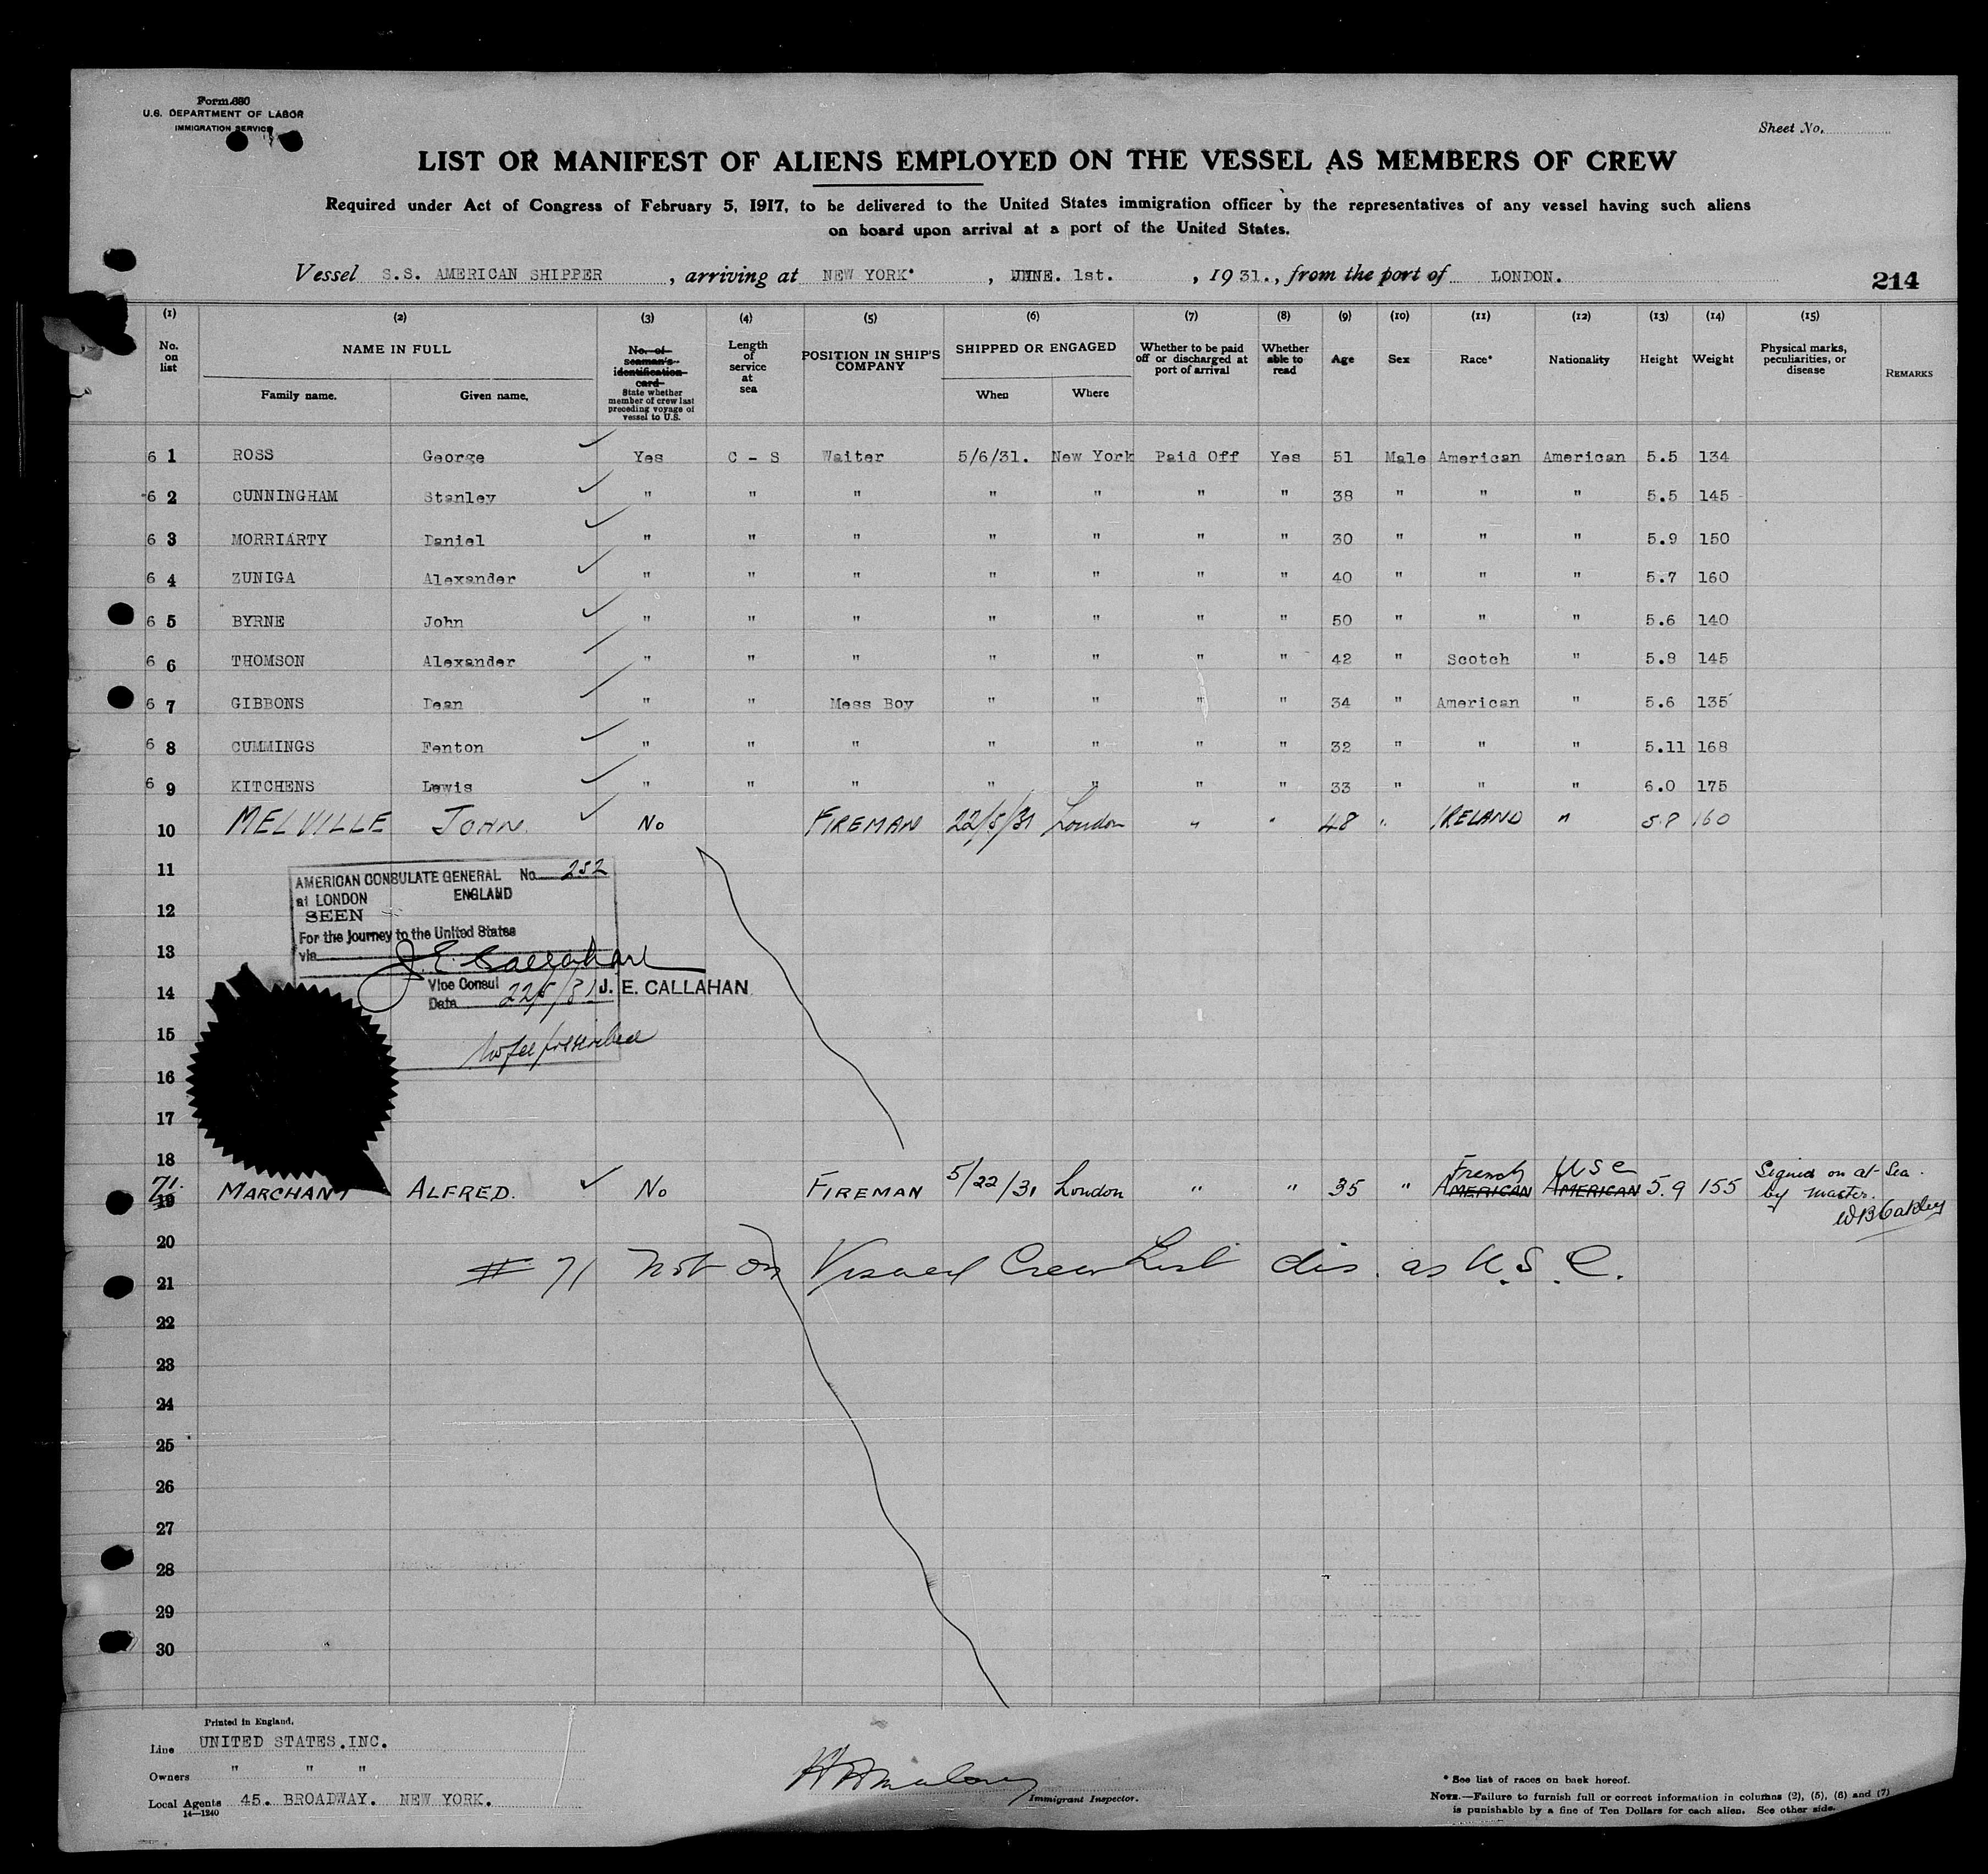 Form 680
U.S. DEPARTMENT OF LABOR
IMMIGRATION SERVICE
Sheet No.
LIST OR MANIFEST OF ALIENS EMPLOYED ON THE VESSEL AS MEMBERS OF CREW
Required under Act of Congress of February 5, 1917, to be delivered to the United States immigration officer by the representatives of any vessel having such aliens
on board upon arrival at a port of the United States.
Vessel S.S. AMERICAN SHIPPER, arriving at NEW YORK, JUNE. 1st., 1931., from the port of LONDON.
214
(1) (2) (3) (4) (5) (6) (7) (8) (9) (10) (11) (12) (13) (14) (15)
No. on list NAME IN FULL Family name. Given name. No. of seaman's identification card State whether member of crew last preceding voyage of vessel to U.S. Length of service at sea POSITION IN SHIP'S COMPANY SHIPPED OR ENGAGED When Where Whether to be paid off or discharged at port of arrival Whether able to read Age Sex Race* Nationality Height Weight Physical marks, peculiarities, or disease REMARKS
6 1 ROSS George Yes C - S Waiter 5/6/31. New York Paid Off Yes 51 Male American American 5.5 134
6 2 CUNNINGHAM Stanley " " " " " " " 38 " " " 5.5 145
6 3 MORRIARTY Daniel " " " " " " " 30 " " " 5.9 150
6 4 ZUNIGA Alexander " " " " " " " 40 " " " 5.7 160
6 5 BYRNE John " " " " " " " 50 " " " 5.6 140
6 6 THOMSON Alexander " " " " " " " 42 " Scotch " 5.8 145
6 7 GIBBONS Dean " " Mess Boy " " " " 34 " American " 5.6 135
6 8 CUMMINGS Fenton " " " " " " " 32 " " " 5.11 168
6 9 KITCHENS Lewis " " " " " " " 33 " " " 6.0 175
10 MELVILLE JOHN. No FIREMAN 22/5/31 London " " 48 " IRELAND " 5.8 160
11
AMERICAN CONSULATE GENERAL No. 252
at LONDON ENGLAND
12
SEEN
For the journey to the United States
13
via
J. E. Callahan
14
Vice Consul J. E. CALLAHAN
Date 22/5/31
15
No fee prescribed
16
17
18
71. 19 MARCHANT ALFRED. No FIREMAN 5/22/31 London " " 35 " French AMERICAN USC AMERICAN 5.9 155 Signed on at Sea by master. W B Oakley
20
# 71 not on Visaed Crew List dis. as U.S.C.
21
22
23
24
25
26
27
28
29
30
Printed in England.
Line UNITED STATES.INC.
Owners " " "
Local Agents 45. BROADWAY. NEW YORK.
14—1240
Immigrant Inspector.
* See list of races on back hereof.
NOTE.—Failure to furnish full or correct information in columns (2), (5), (6) and (7)
is punishable by a fine of Ten Dollars for each alien. See other side.